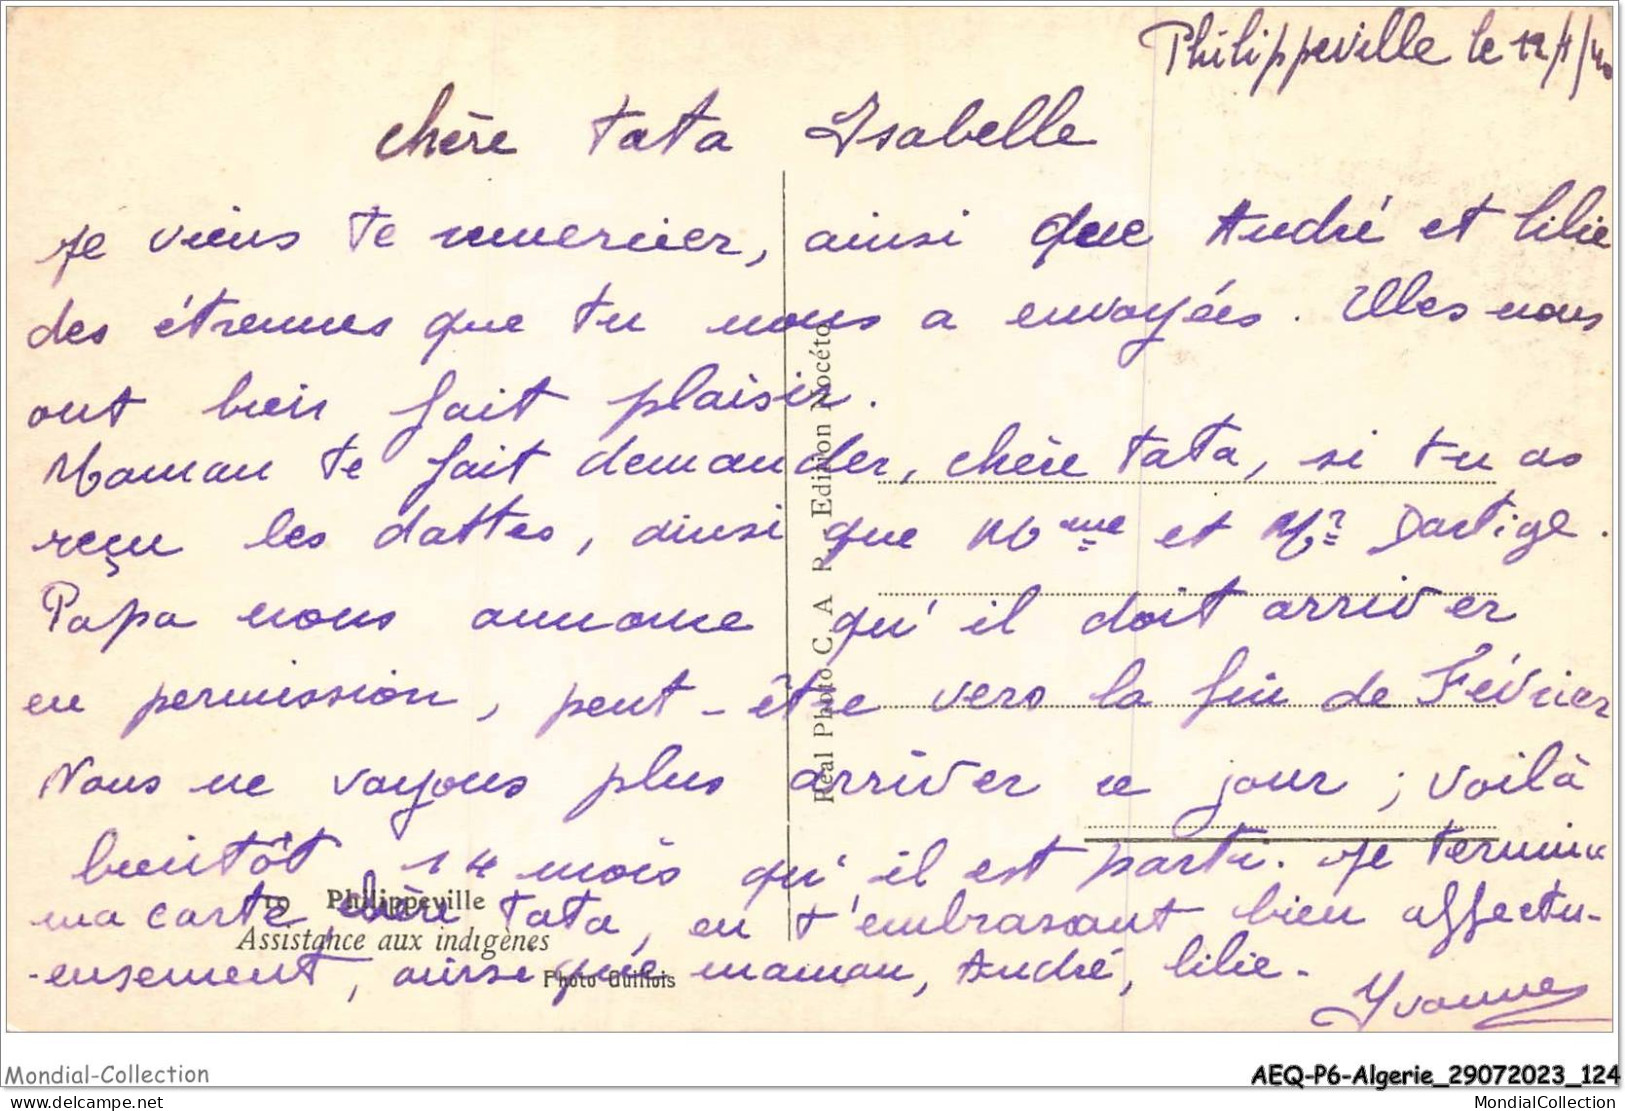 Philippeville le 12/1/40
chère tata Isabelle
Je viens te remercier, ainsi que André et lilie
des étrennes que tu nous a envoyées. Elles nous
ont bien fait plaisir.
Maman te fait demander, chère tata, si tu as
reçu les dattes, ainsi que Mme et Mr Dartige.
Papa nous annonce qu'il doit arriver
en permission, peut-être vers la fin de Février
Nous ne voyons plus arriver ce jour ; voilà
bientôt 14 mois qu'il est parti. Je termine
ma carte, chère tata, en t'embrassant bien affectu-
-eusement, ainsi que maman, André, lilie.
Yvonne
Real Photo C. A. P. Edition Nocéto
10 Philippeville
Assistance aux indigènes
Photo Guillois
Mondial-Collection
AEQ-P6-Algerie_29072023_124
www.delcampe.net
MondialCollection